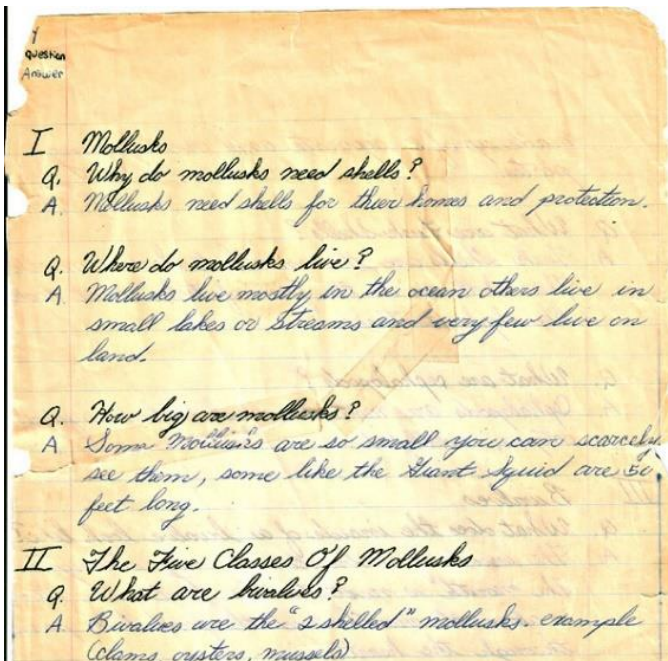 Question
Answer
I Mollusks
Q. Why do mollusks need shells?
A. Mollusks need shells for their homes and protection.
Q. Where do mollusks live?
A. Mollusks live mostly in the ocean others live in
small lakes or streams and very few live on
land.
Q. How big are mollusks?
A Some mollusks are so small you can scarcely
see them, some like the Giant Squid are 50
feet long.
II The Five Classes Of Mollusks
Q. What are bivalves?
A. Bivalves are the "2 shelled" mollusks. example
(clams, oysters, mussels)